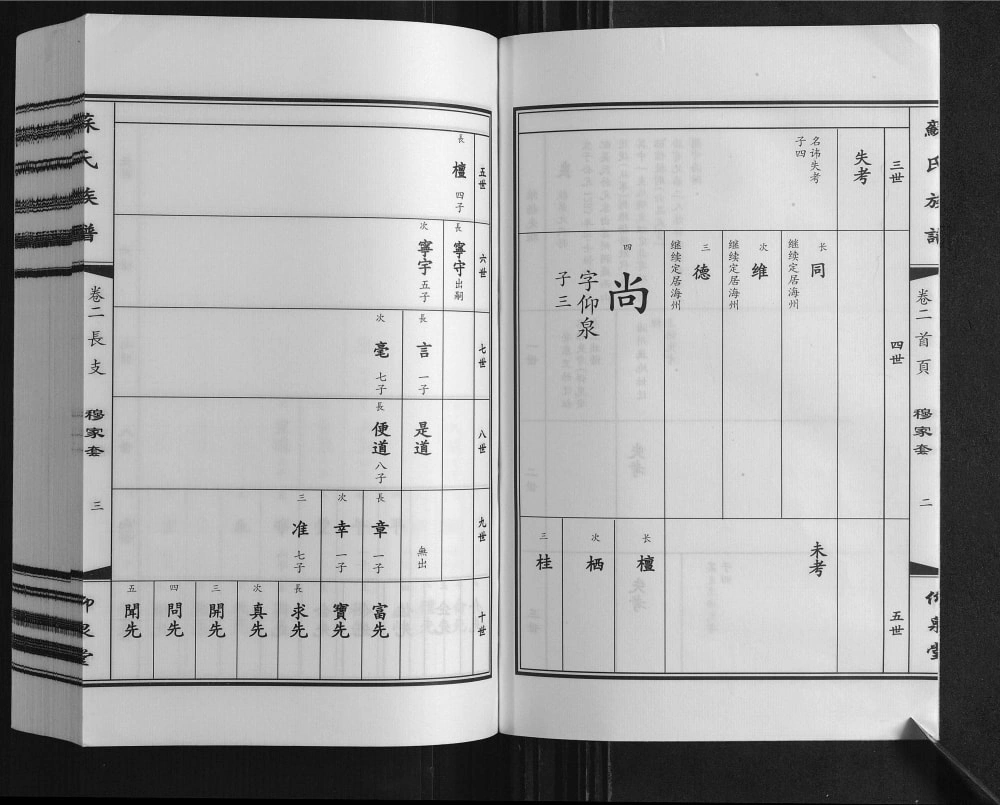 蘇氏族譜
卷二首頁
穆家套
二
仰泉堂
三世
四世
五世
失考
名讳失考
子四
长
同
继续定居海州
次
维
继续定居海州
三
德
继续定居海州
四
尚
字仰泉
子三
未考
长
檀
次
栖
三
桂
五世
六世
七世
八世
九世
十世
長
檀
四子
長
寧守
出嗣
次
寧宇
五子
長
言
一子
次
毫
七子
是道
長
便道
八子
無出
長
章
一子
次
幸
一子
三
准
七子
富先
寶先
長
求先
次
真先
三
開先
四
問先
五
聞先
蘇氏族譜
卷二長支
穆家套
三
仰泉堂